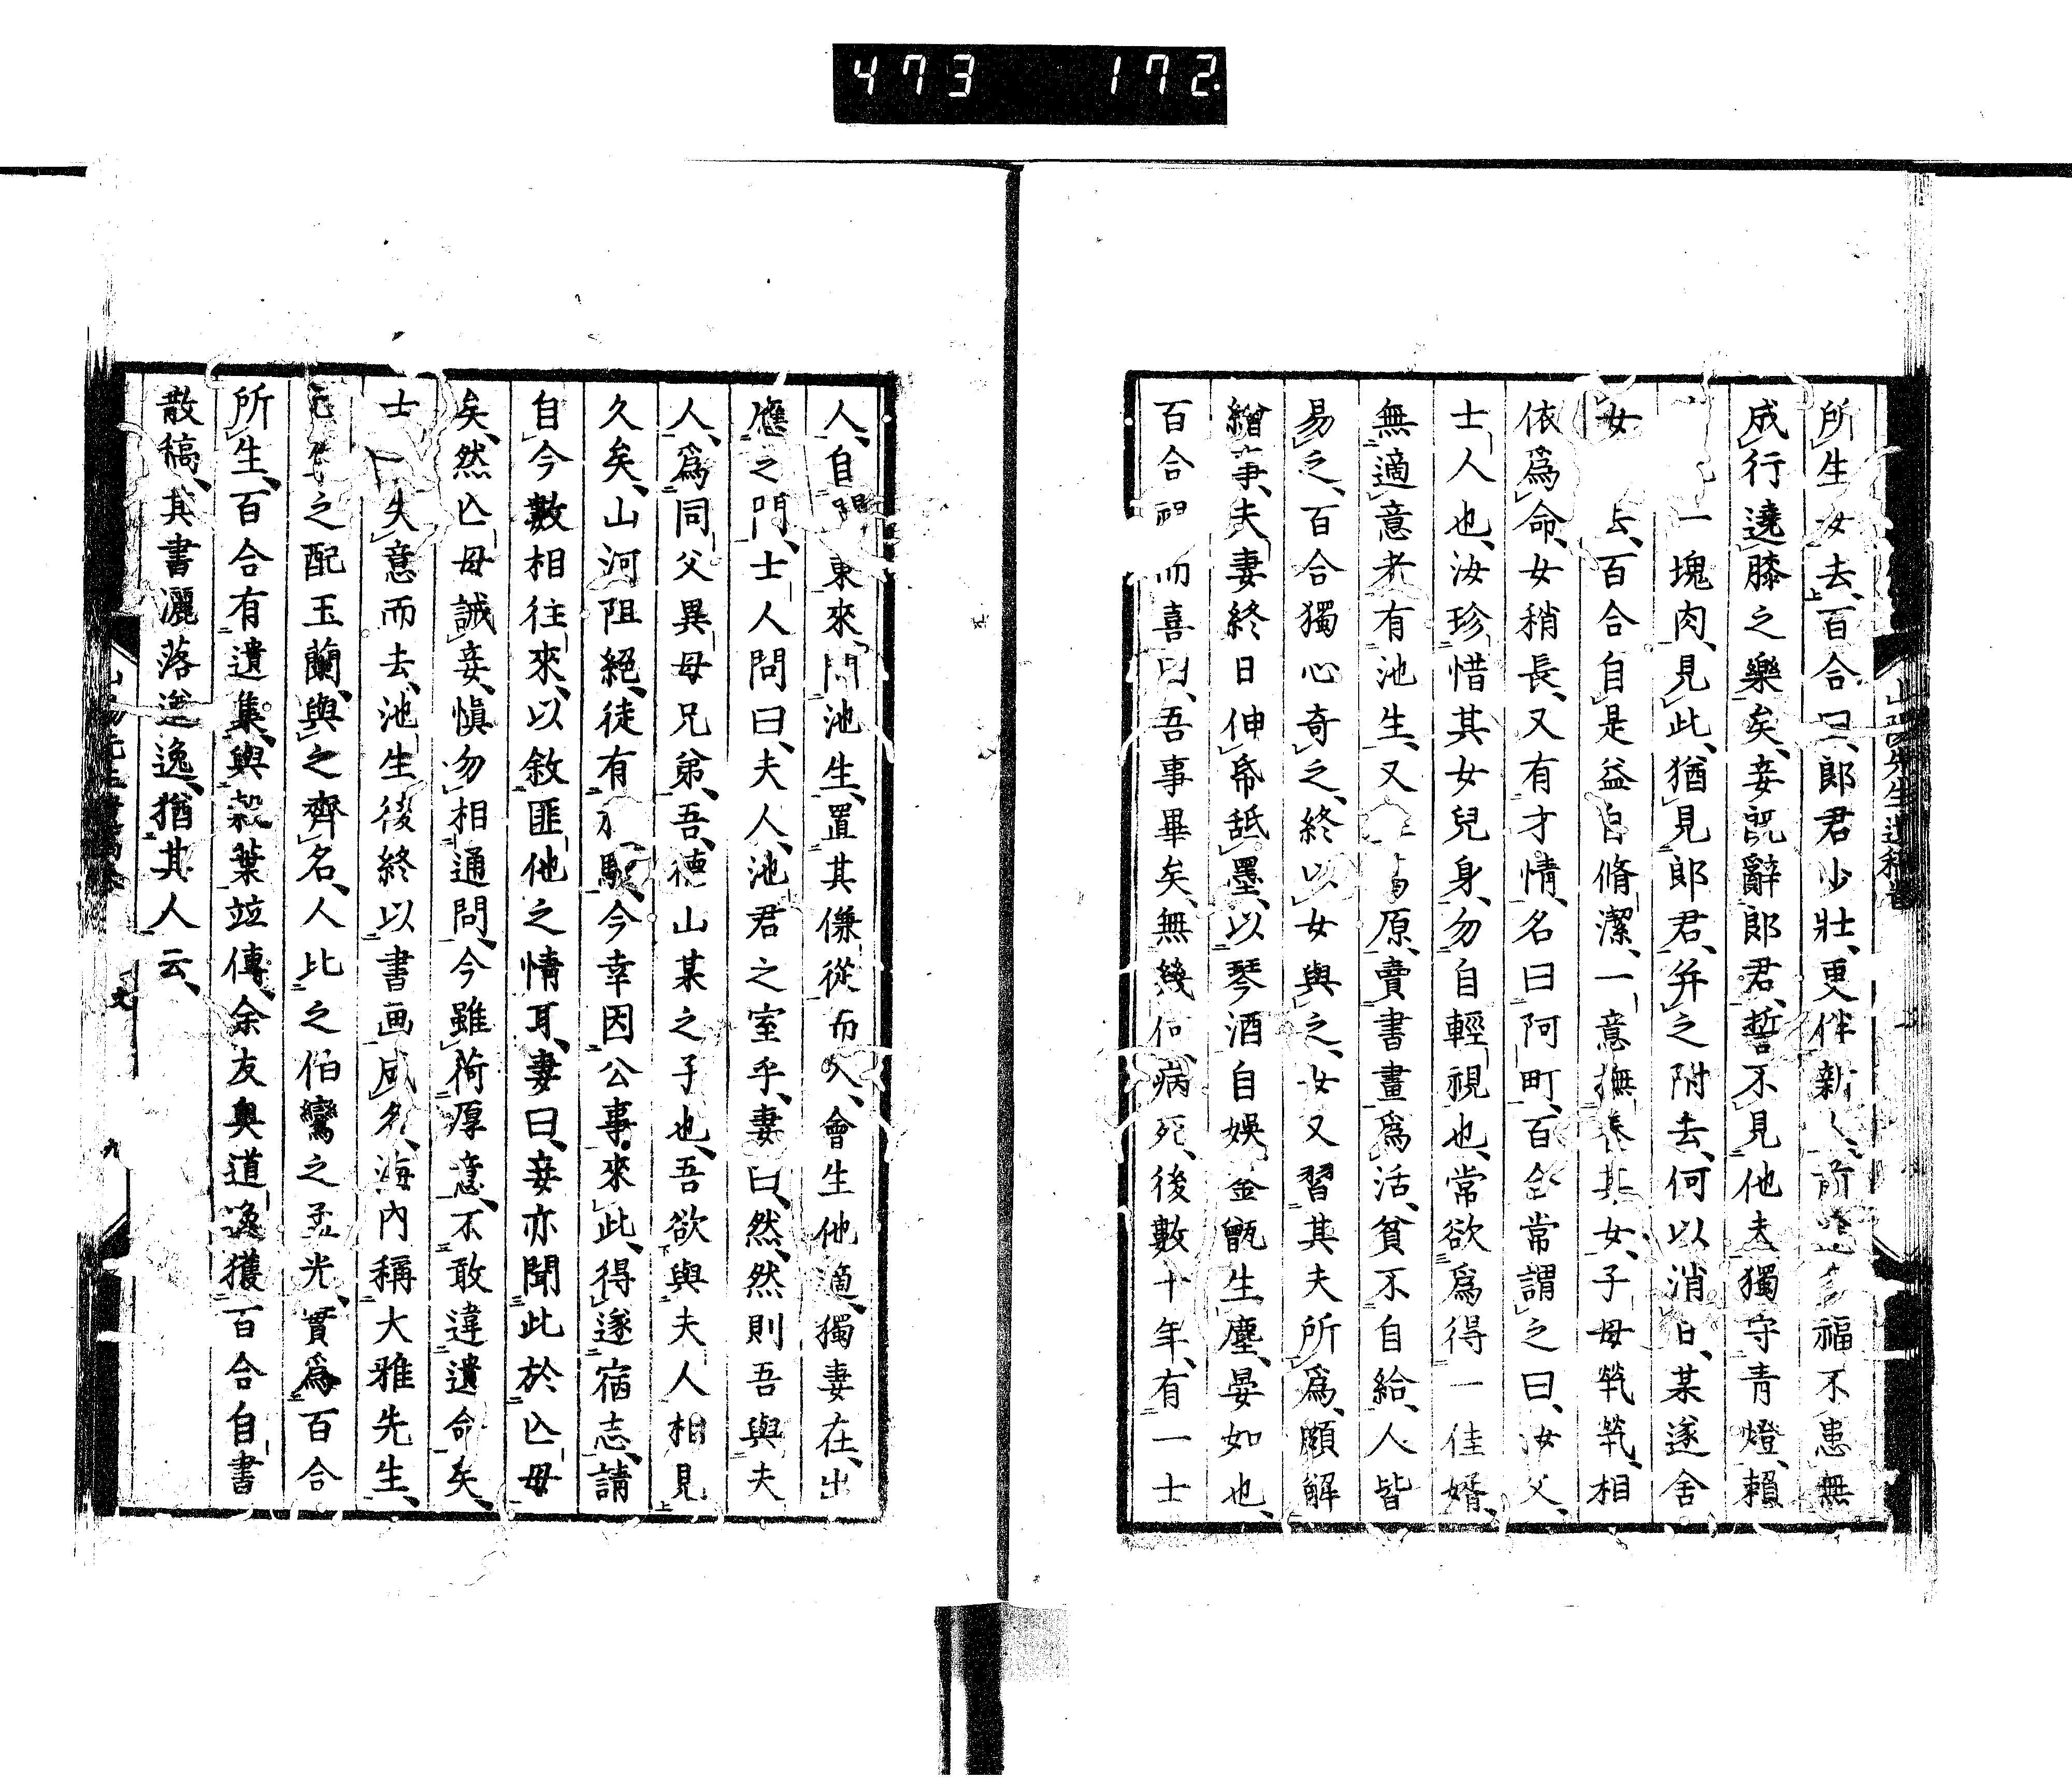 473 172
所生女去、百合曰、郎君少壯、更伴新人、前途多福不患無
成行遶膝之樂矣、妾既辭郎君、誓不見他夫、獨守青燈、賴
一塊肉、見此、猶見郎君、并之附去、何以消日、某遂舍
女去、百合自是益自脩潔、一意撫養其女、子母煢煢、相
依爲命、女稍長、又有才情、名曰阿町、百合常謂之曰、汝父、
士人也、汝珍惜其女兒身、勿自輕視也、常欲爲得一佳婿、
無適意者、有池生、又 原、賣書畫爲活、貧不自給、人皆
易之、百合獨心奇之、終以女與之、女又習其夫所爲、頗解
繪事、夫妻終日伸帋舐墨、以琴酒自娛、釜甑生塵、晏如也、
百合 而喜曰、吾事畢矣、無幾何、病死、後數十年、有一士
人、自 東來、問池生、置其傔從而入、會生他適、獨妻在、出
應之門、士人問曰、夫人、池君之室乎、妻曰、然、然則吾與夫
人、爲同父異母兄弟、吾、德山某之子也、吾欲與夫人相見
久矣、山河阻絕、徒有 馳、今幸因公事來此、得遂宿志、請
自今數相往來、以敘匪他之情耳、妻曰、妾亦聞此於亡母
矣、然亡母誡妾、愼勿相通問、今雖荷厚意、不敢違遺命矣、
士人失意而去、池生後終以書画成名、海內稱大雅先生、
之配玉蘭、與之齊名、人比之伯鸞之孟光、實爲百合
所生、百合有遺集、與梶葉竝傳、余友奧道逸獲百合自書
散稿、其書灑落遒逸、猶其人云、